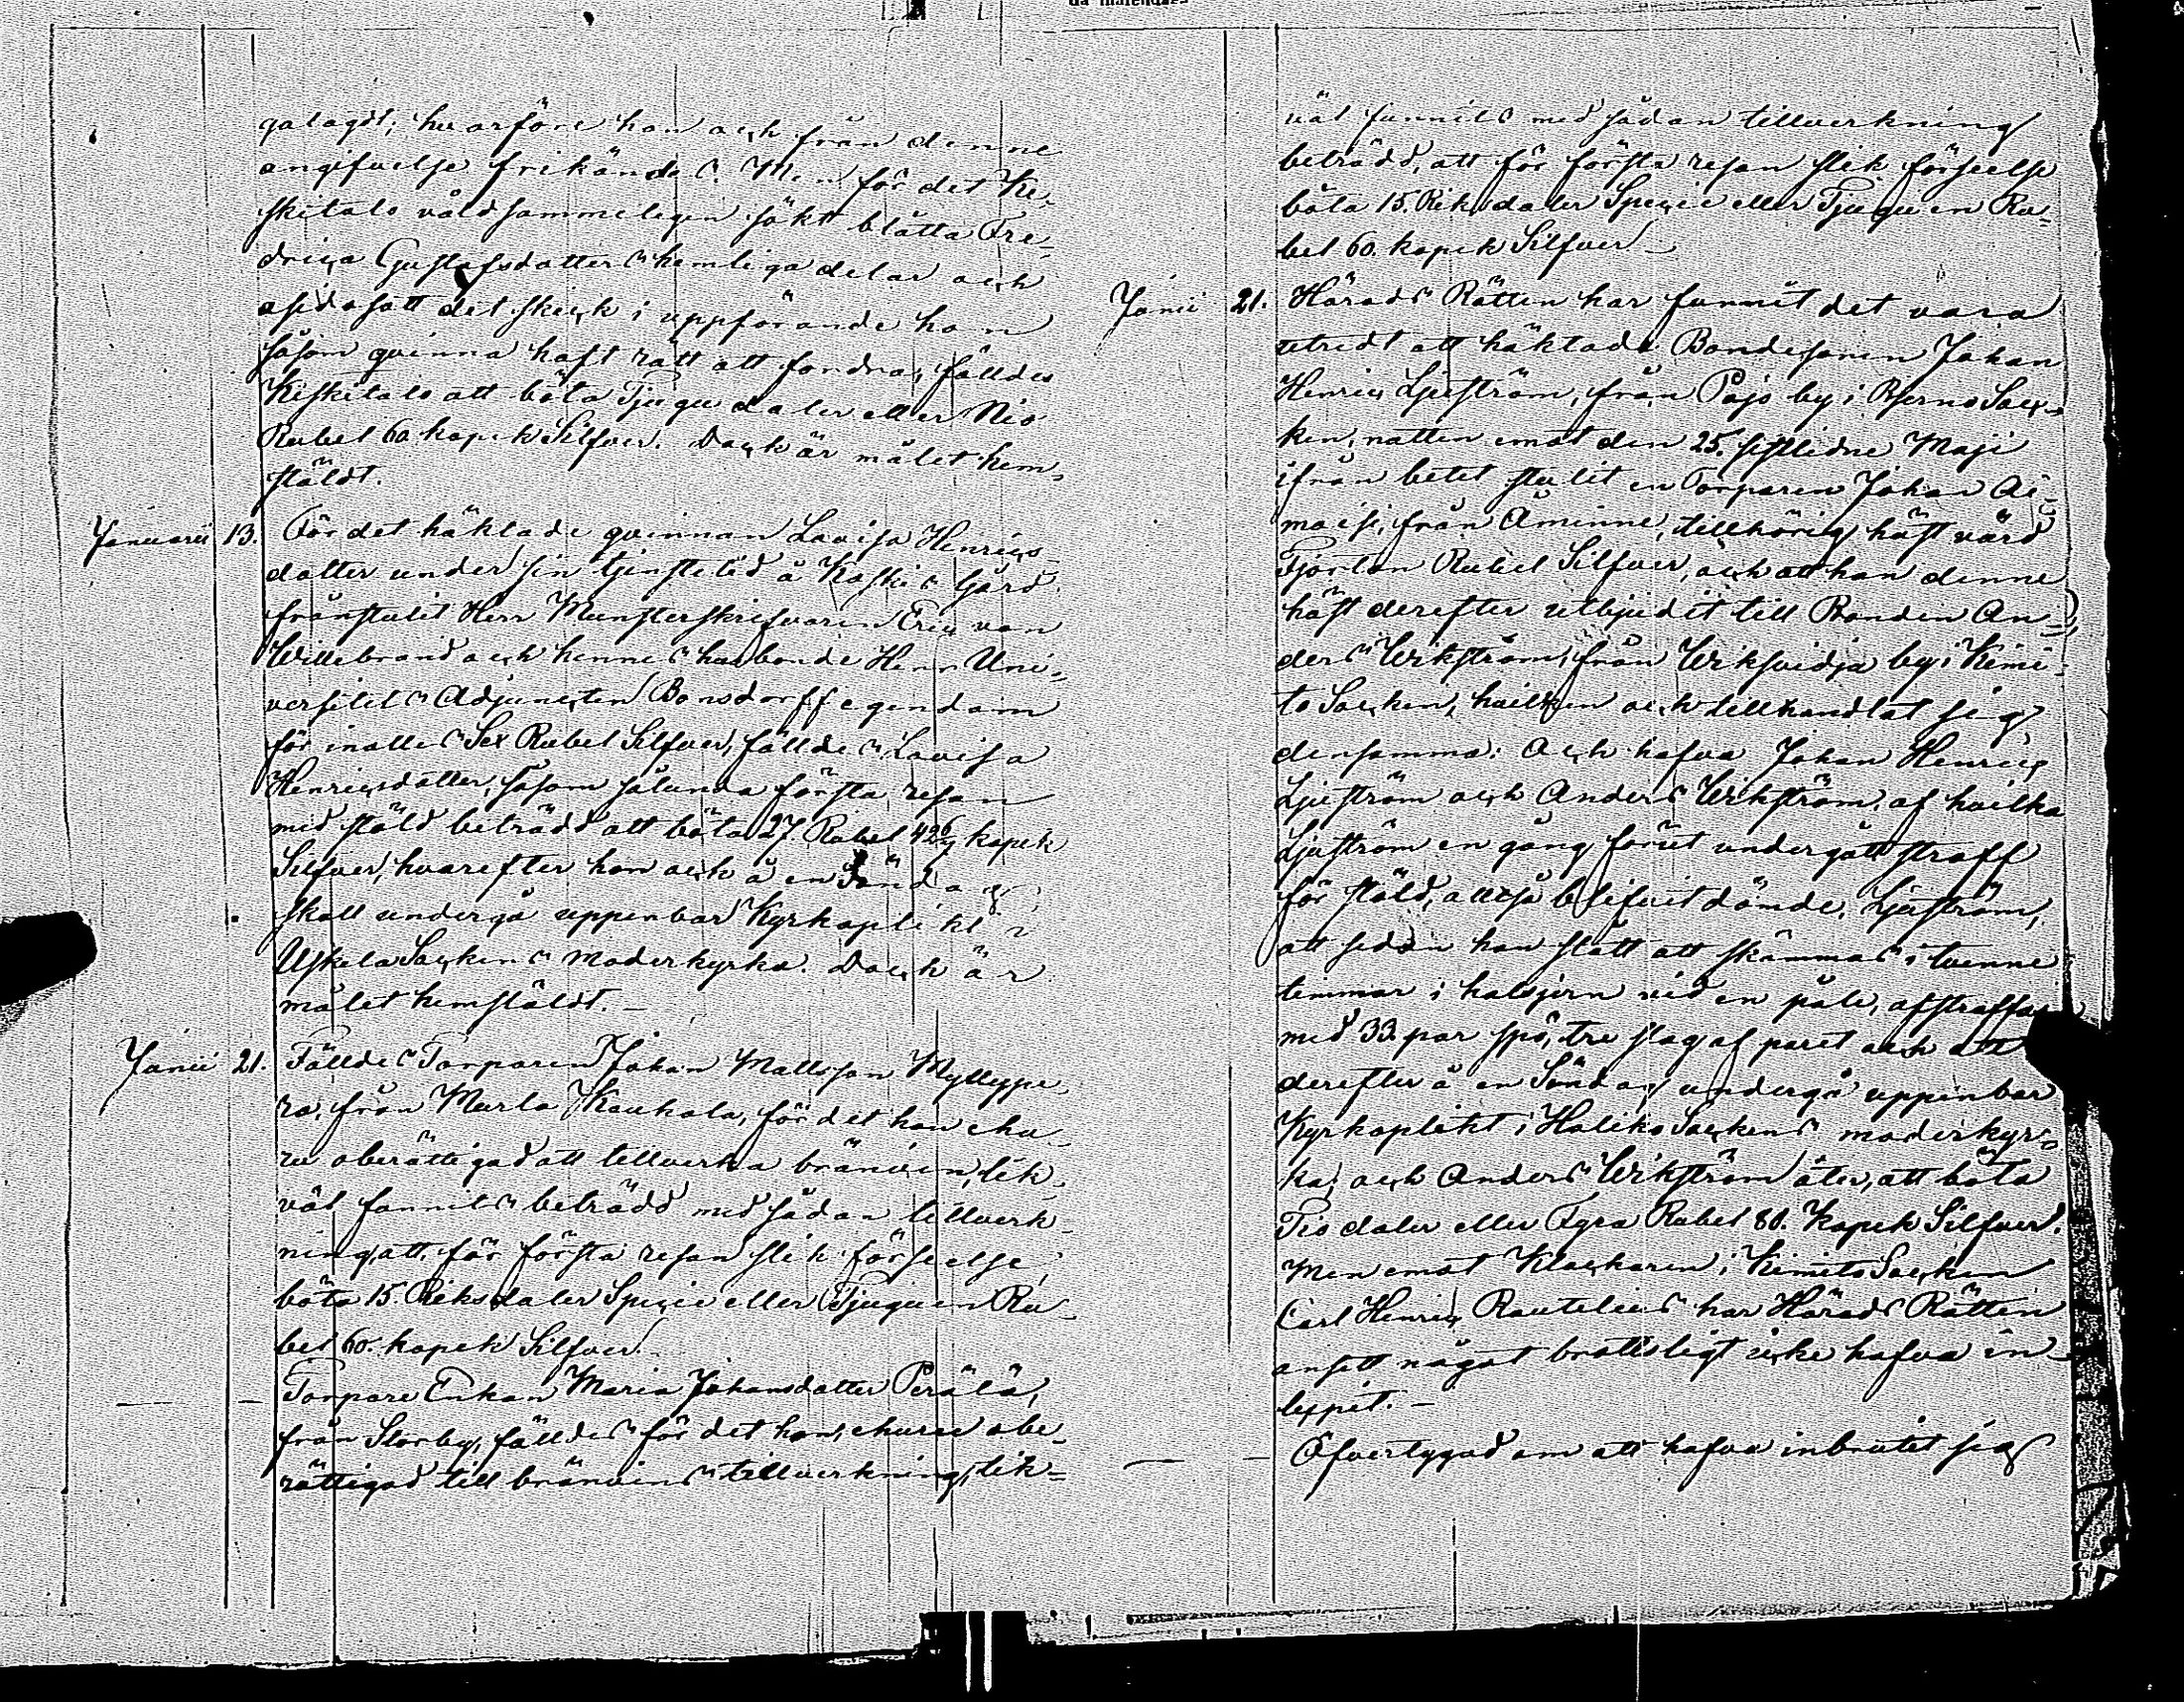 galagdt; hvarföre han ock från denne
angifvelse frikändes. Men för det Ke-
skitalo våldsammeligen sökt blåtta Fre-
drica Gustafsdotters hemliga delar och
åsidosatt det skick i uppförande hon
såsom qvinna haft rätt att fordra, fälldes
Keskitalo att böta Tjugu daler eller Nio
Rubel 60 kopek Silfver. Dock är målet hem-
stäldt.
Januarii 13. För det häktade qvinnan Lovisa Henrics
dotter under sin tjenstetid å Koskis Gård
frånstulit Herr Munsterskrifvaren Eric von
Willebrand och hennes husbonde Herr Uni-
versitets Adjuncten Bonsdorff egendom
för inalles Sex Rubel Silfver, fälldes Lovisa
Henricsdotter, såsom sålunda första resan
med stöld beträdd att böta 27. Rubel 42 6/7 kopek
Silfver, hvarefter hon ock å en Söndag
skall undergå uppenbar Kyrkoplikt i
Uskela Sockens moderkyrka. Dock är
målet hemstäldt. —
Junii 21. Fälldes Torparen Johan Mattsson Myllyppe-
ra, från Murla Kaukola, för det han ehu-
ru oberättigad att tillverka bränvin, lik-
väl funnits beträdd med sådan tillverk-
ning, att, för första resan slik förseelse,
böta 15. Riksdaler Specie eller Tjuguen Ru-
bel 60. kopek Silfver.
— — Torpare Enkan Maria Johansdotter Perälä,
från Storby, fälldes för det hon, ehuru obe-
rättigad till bränvins tillverkning, lik-
väl funnits med sådan tillverkning
beträdd, att för första resan slik förseelse
böta 15. Riksdaler Specie eller Tjuguen Ru-
bel 60. kopek Silfver. —
Junii 21. Härads Rätten har funnit det vara
utredt att häktade Bondesonen Johan
Henric Ljuström, från Pojo by i Bjerno Soc-
ken, natten emot den 25. sistledne Maji
ifrån betet stulit en Torparen Johan
från Åminne, tillhörig häst värd
Fjorton Rubel Silfver, och att han denne
häst derefter utbjudit till Bonden An-
ders Wikström, från Wiksvidja by i Kimi-
to Socken, hvilken ock tillhandlat sig
densamma: Och hafva Johan Henric
Ljuström och Anders Wikström, af hvilka
Ljuström en gång förut undergått straff
för stöld, alltså blifvit dömde, Ljuström,
att sedan han stått att skämmas i tvenne
timmar i halsjern vid en påle, afstraffas
med 33. par spö, tre slag af paret och att
derefter å en Söndag undergå uppenbar
Kyrkoplikt i Haliko Sockens moderkyr-
ka; och Anders Wikström åter, att böta
Tio daler eller Fyra Rubel 80. kopek Silfver.
Men emot Klockaren i Kimito Socken
Carl Henric Rautelius har Härads Rätten
ansett något brottsligt icke hafva in-
luppit. —
— — Öfvertygad om att hafva inbrutit sig